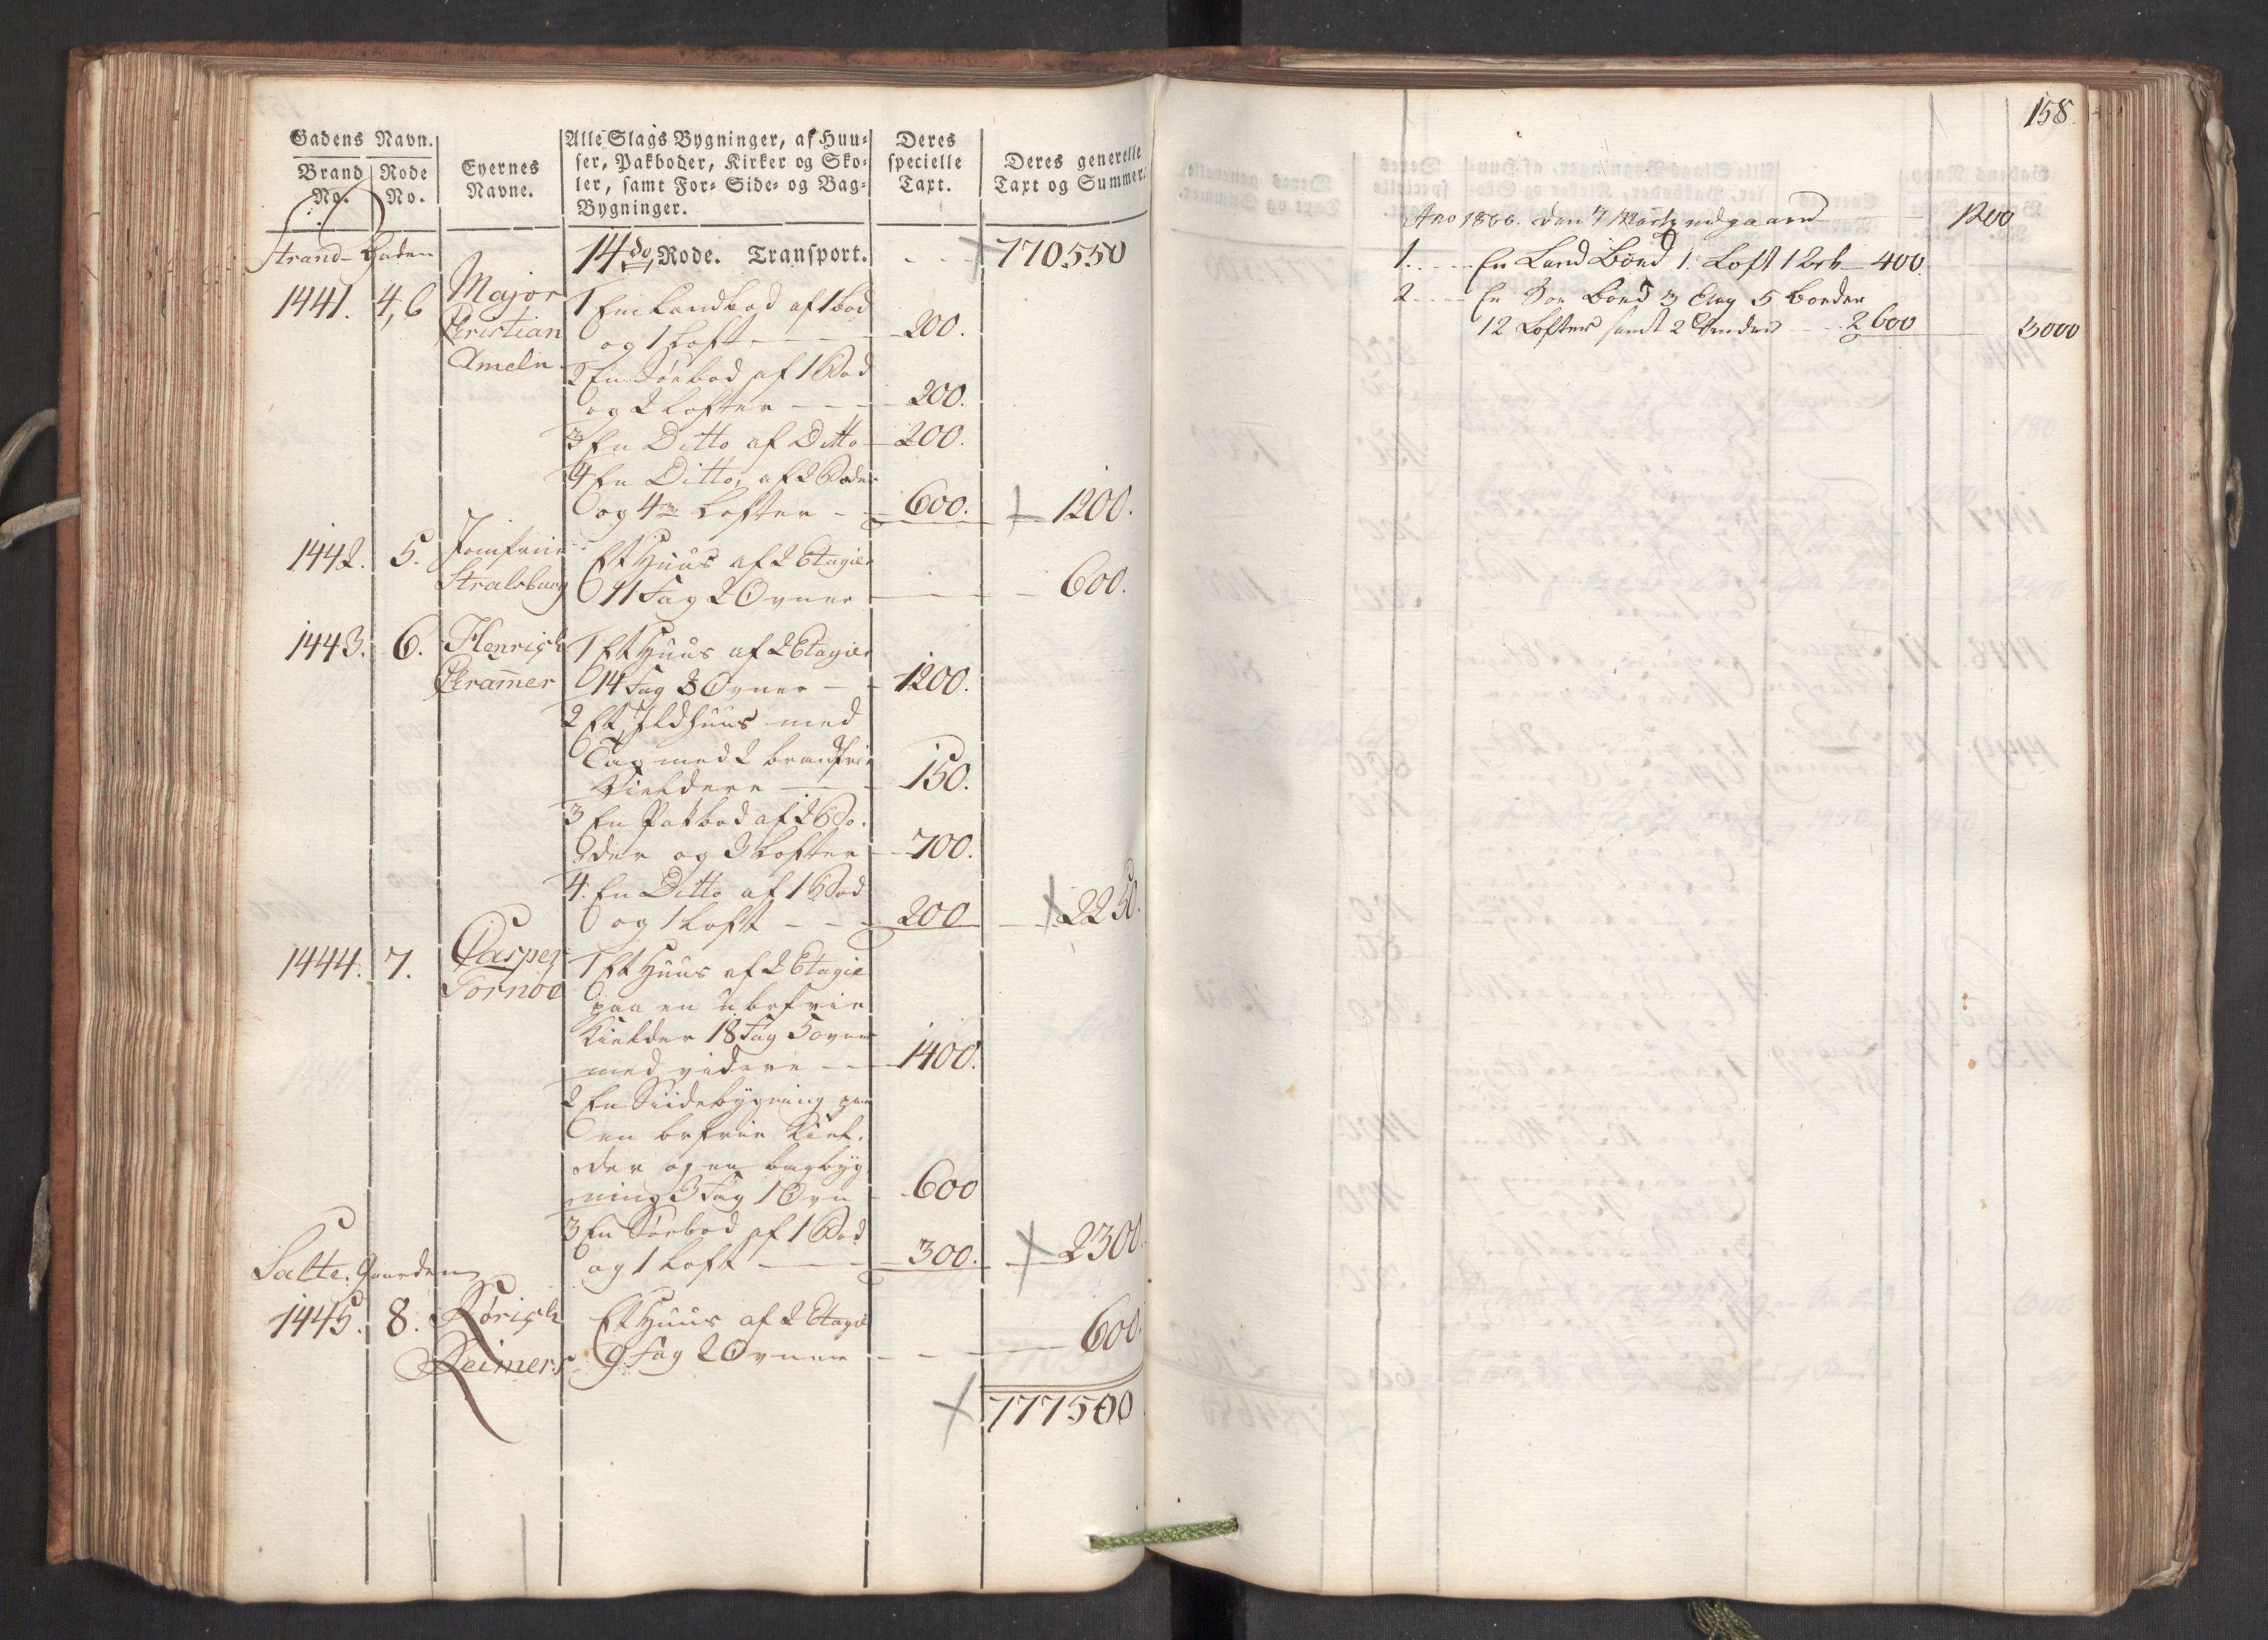 Gadens Navn.
Brand No.
Rode No.
Eyernes Navne.
Alle Slags Bygninger, af Huu-
ser, Pakboder, Kirker og Sko-
ler, samt For- Side- og Bag-
Bygninger.
Deres specielle Taxt.
Deres generelle Taxt og Summer.
Strand-Gaden
14de Rode. Transport. - - 770550
1441. 4,6 Major Christian Ameln
1 En Landbod af 1 Bod
og 1 Loft - - - 200.
2 En Søebod af 1 Bod
og 2 Lofter - - - 200.
3 En Ditto af Ditto - 200.
4 En Ditto, af 2 Boder
og 4re Lofter - 600. 1200.
1442. 5. Jomfrue Stralsburg
Et Huus af 2 Etagier
11 Fag 2 Ovner - - - 600.
1443. 6. Henrich Cramer
1 Et Huus af 2 Etagier
14 Fag 3 Ovner - - 1200.
2 Et Ildhuus med
Tag med 2 brandfrie
Kieldere - - 150.
3 En Pakbod af 2 Bo-
der og 3 Lofter - 700.
4. En Ditto af 1 Bod
og 1 Loft - - 200 2250.
1444. 7. Casper Tornöe
1 Et Huus af 2 Etagie
paa en ubefrie
Kielder 18 Fag 5 ovner
med videre - - 1400.
2 En Siidebygning paa
en befrie Kiel-
der og en bagbyg
ning 3 Fag 1 Ovn - 600
3 En Søebod af 1 Bod
og 1 Loft - - - 300. 2300.
Salte. Gaarden
1445. 8. Börich Reimers
Et Huus af 2 Etagie
9 Fag 2 Ovner - - - 600.
777500
158.
Ano 1806. den 7 Martz udgaaend 1200
1. - - - En Land Boed 1. Loft 1 - 400.
2 - - - En Søe Boed 3 Etag 5 boeder
12 Lofter samt 2 - - 2600 3000